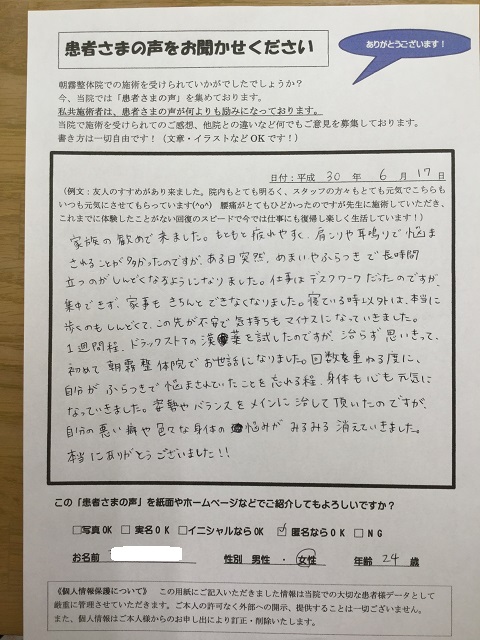 患者さまの声をお聞かせください
ありがとうございます！
朝霧整体院での施術を受けられていかがでしたでしょうか？
今、当院では「患者さまの声」を集めております。
私共施術者は、患者さまの声が何よりも励みになっております。
当院で施術を受けられてのご感想、他院との違いなど何でもご意見を募集しております。
書き方は一切自由です！（文章・イラストなどOKです！）
日付：平成 30 年 6 月 17 日
（例文：友人のすすめがあり来ました。院内もとても明るく、スタッフの方々もとても元気でこちらも
いつも元気にさせてもらっています(^o^) 腰痛がとてもひどかったのですが先生に施術していただき、
これまでに体験したことがない回復のスピードで今では仕事にも復帰し楽しく生活しています！）
家族の勧めで来ました。もともと疲れやすく、肩こりや耳鳴りで悩ま
されることが多かったのですが、ある日突然、めまいやふらつきで長時間
立つのがしんどくなるようになりました。仕事はデスクワークだったのですが、
集中できず、家事もきちんとできなくなりました。寝ている時以外は、本当に
歩くのもしんどくて、この先が不安で気持ちもマイナスになっていきました。
1週間程、ドラッグストアの漢薬を試したのですが、治らず思いきって、
初めて朝霧整体院でお世話になりました。回数を重ねる度に、
自分がふらつきで悩まされていたことを忘れる程、身体も心も元気に
なっていきました。姿勢やバランスをメインに治して頂いたのですが、
自分の悪い癖や色々な身体の悩みがみるみる消えていきました。
本当にありがとうございました!!
この「患者さまの声」を紙面やホームページなどでご紹介してもよろしいですか？
□写真OK □実名OK □イニシャルならOK ☑匿名ならOK □NG
お名前 性別 男性 ・ 女性 年齢 24 歳
《個人情報保護について》 この用紙にご記入いただきました情報は当院での大切な患者様データとして
厳重に管理させていただきます。ご本人の許可なく外部への開示、提供することは一切ございません。
また、個人情報はご本人様からのお申し出により訂正・削除いたします。